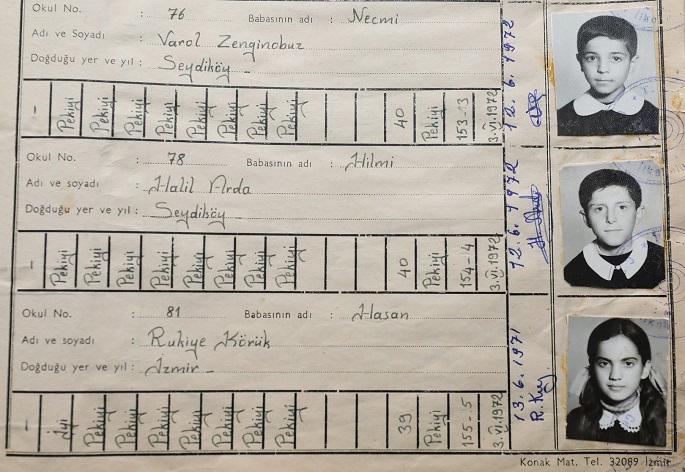 Okul No. : 76 Babasının adı : Necmi
Adı ve Soyadı : Varol Zenginobuz
Doğduğu yer ve yıl : Seydiköy
- Pekiyi Pekiyi Pekiyi Pekiyi Pekiyi Pekiyi Pekiyi 40 Pekiyi 153-3 3.VI.1972
12.6.1972
Okul No. : 78 Babasının adı : Hilmi
Adı ve soyadı : Halil Arda
Doğduğu yer ve yıl : Seydiköy
- Pekiyi Pekiyi Pekiyi Pekiyi Pekiyi Pekiyi Pekiyi 40 Pekiyi 154-4 3.VI.1972
12.6.1972
Okul No. : 81 Babasının adı : Hasan
Adı ve soyadı : Rukiye Körük
Doğduğu yer ve yıl : İzmir
- İyi Pekiyi Pekiyi Pekiyi Pekiyi Pekiyi Pekiyi 39 Pekiyi 155-5 3.VI.1972
13.6.1971
Konak Mat. Tel. 32089 İzmir